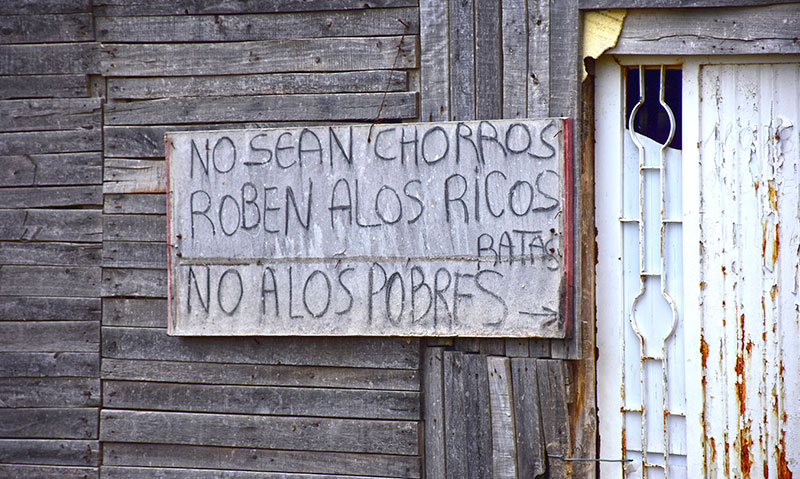 NO SEAN CHORROS
ROBEN A LOS RICOS
RATAS
NO A LOS POBRES →